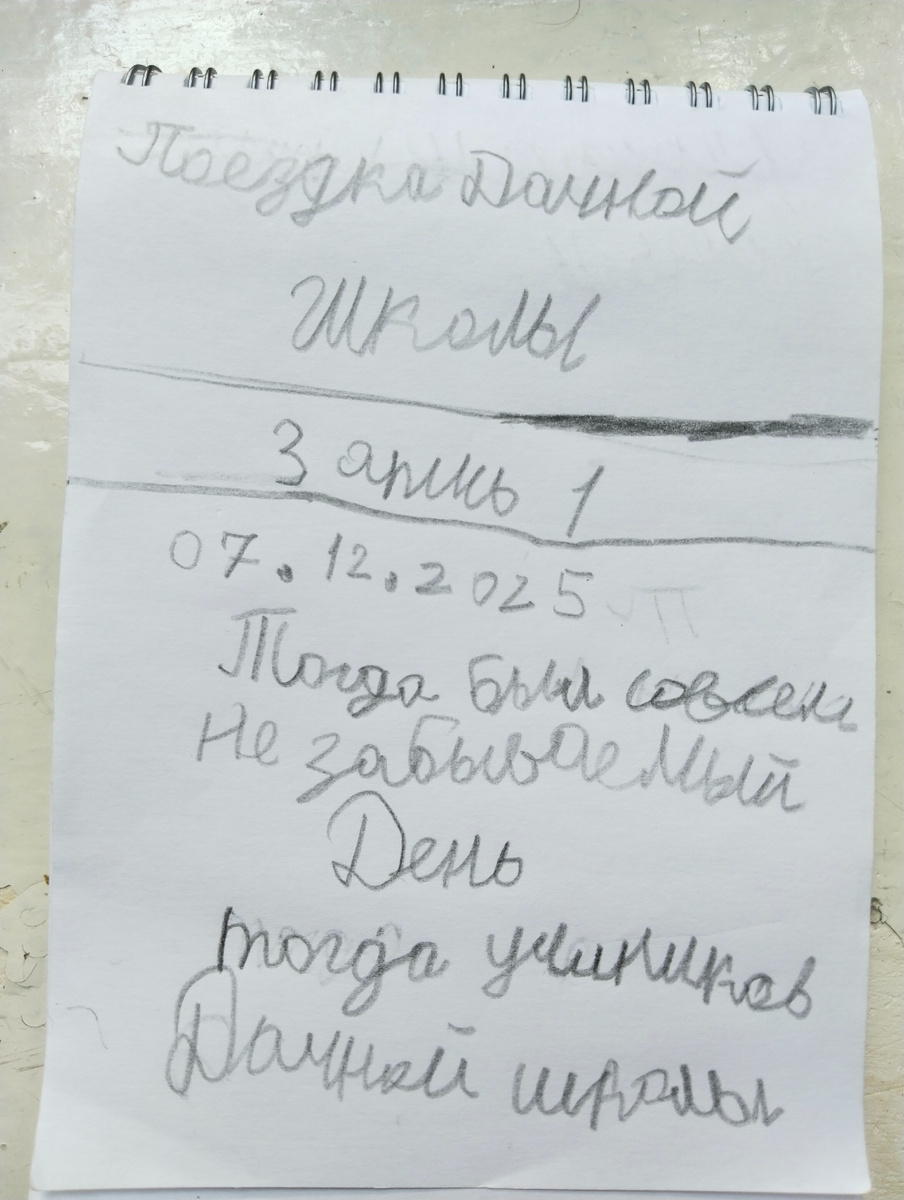 Поездка Дачной
Школы
07.12.2025
Тогда был совсем
Не забываемый
День
тогда учиников
Дачной школы